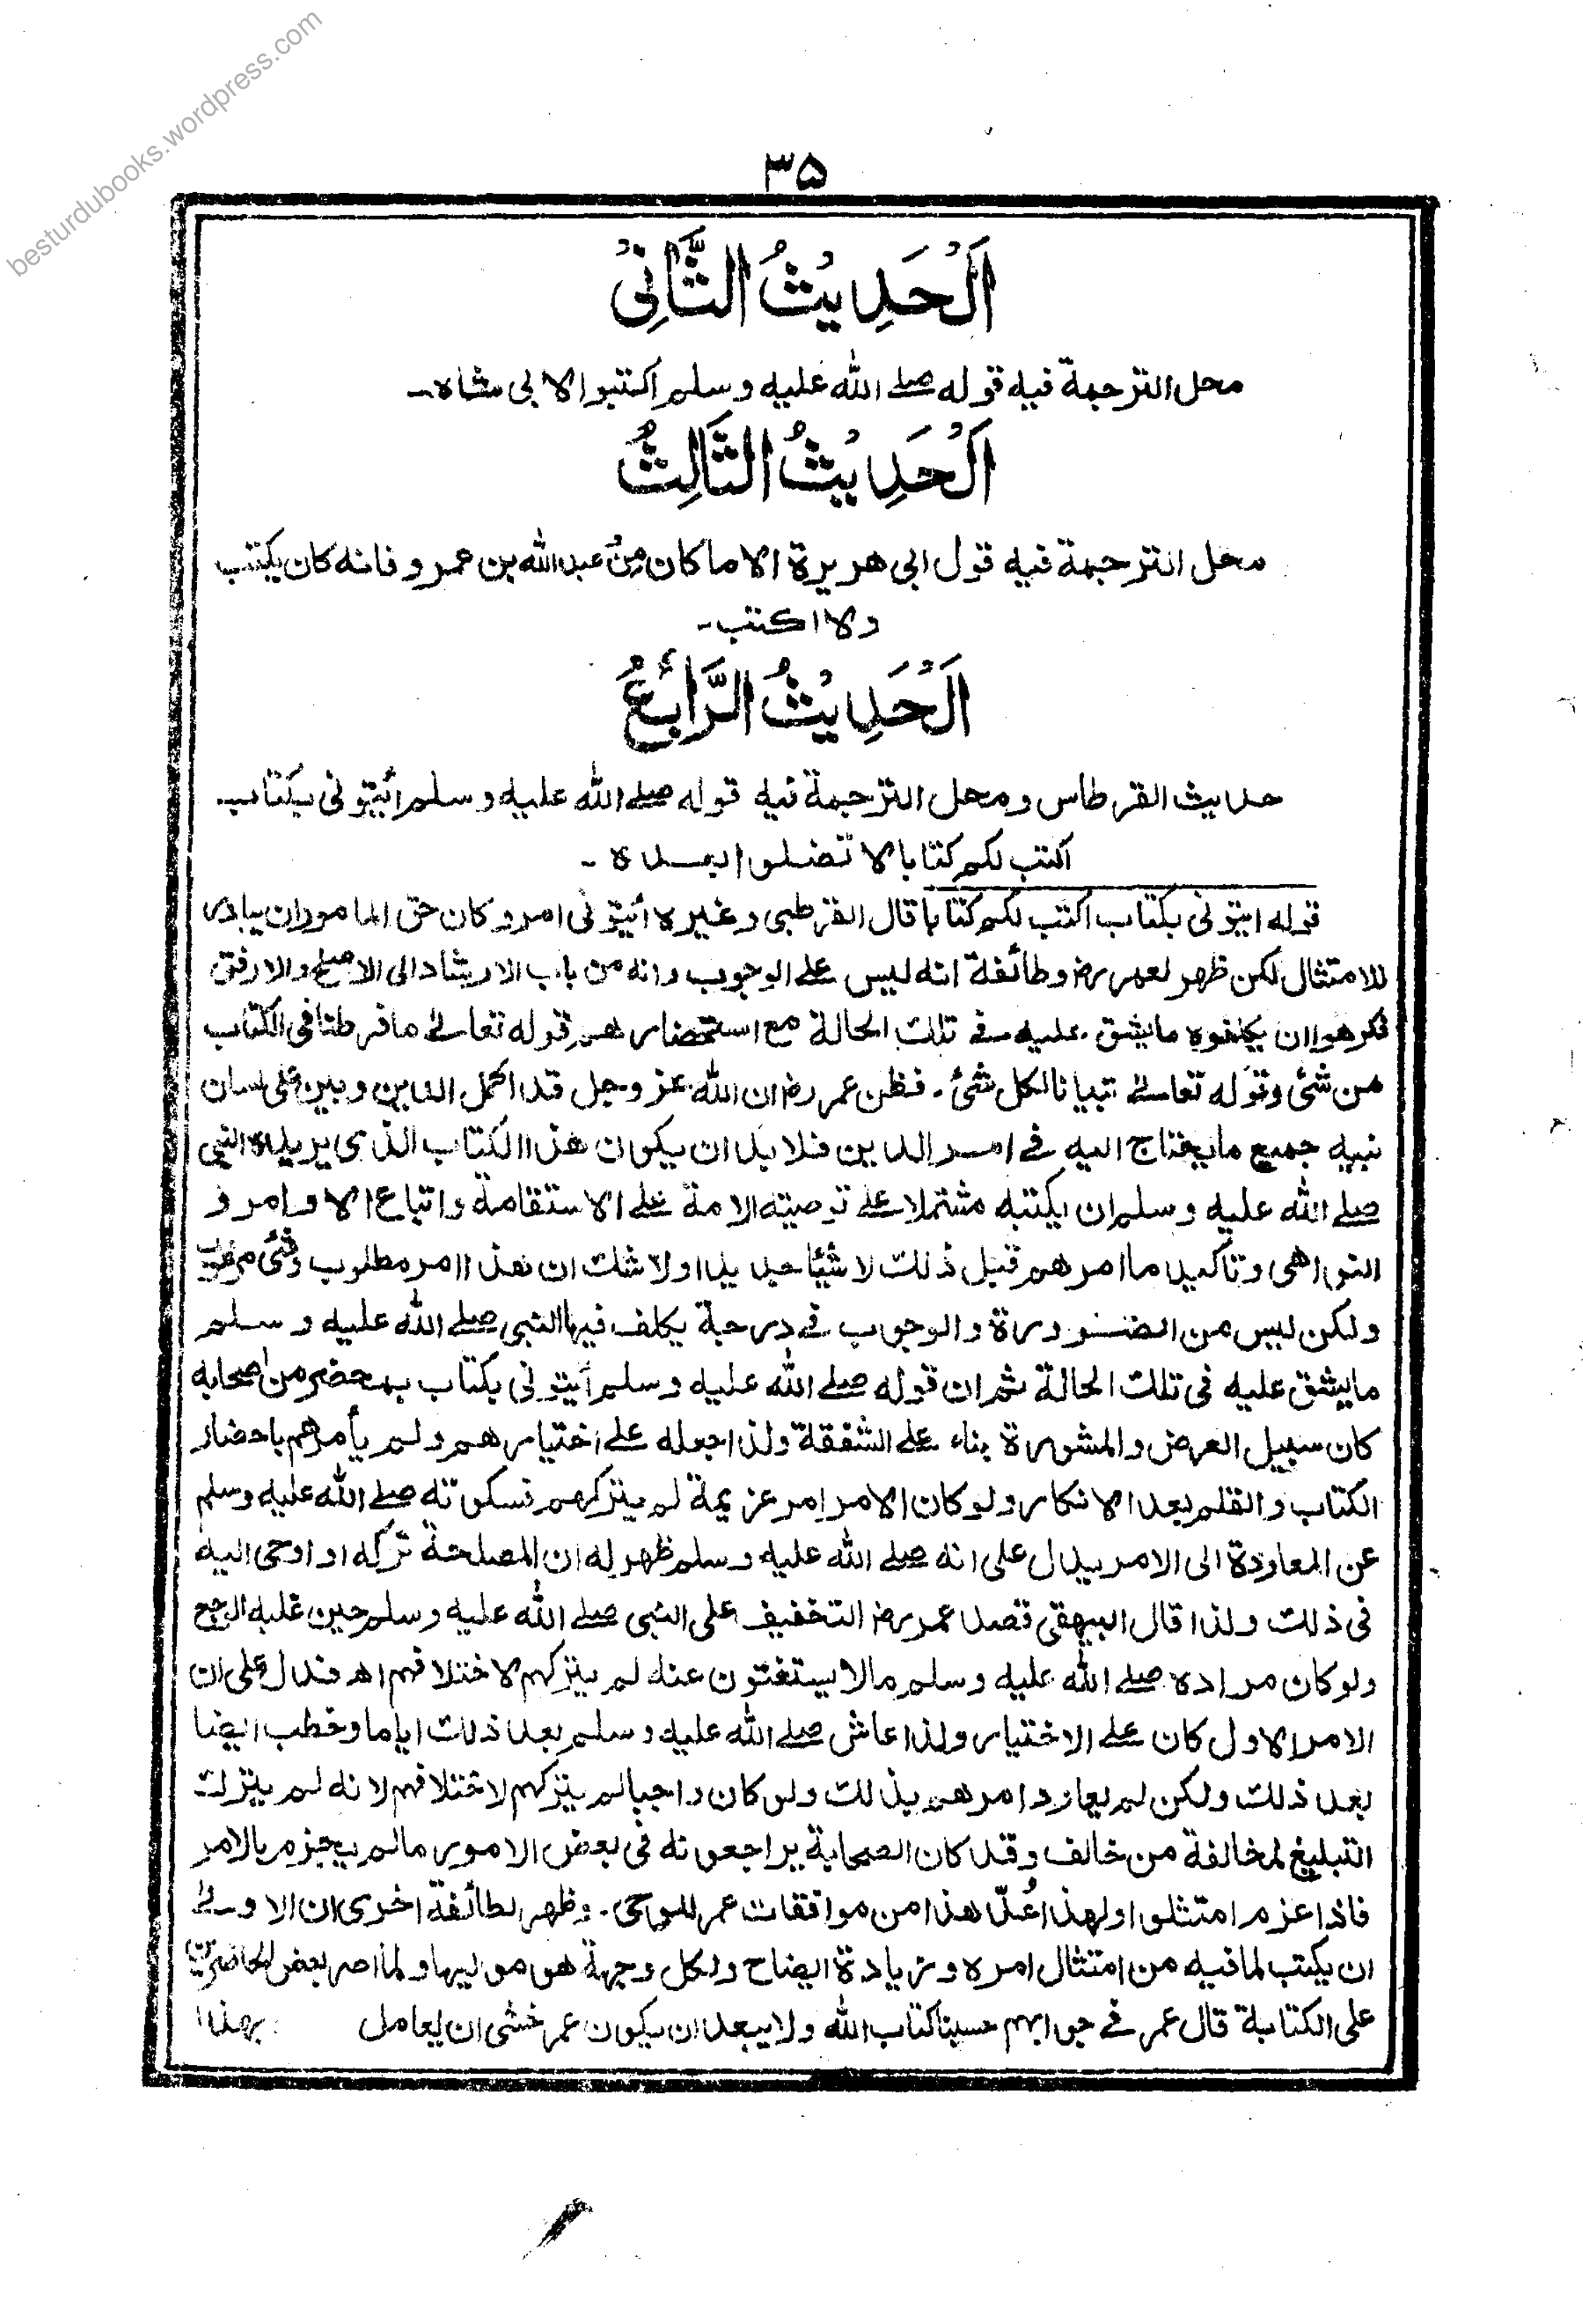 besturdubooks.wordpress.com
۳۵
اَلْحَدِیْثُ الثَّانِیْ
محل الترجمة فیه قوله صلے الله علیه وسلم اکتبوا لابی شاہ۔
اَلْحَدِیْثُ الثَّالِثُ
محل الترجمة فیه قول ابی هریرة الا ما کان مِنْ عبدالله بن عمرو فانه کان یکتب
ولا اکتب۔
اَلْحَدِیْثُ الرَّابِعُ
حدیث القرطاس ومحل الترجمة فیه قوله صلے الله علیه وسلم ائیتونی بکتاب
اکتب لکم کتابا لا تضلوا بعدہ ۔
قوله ایتونی بکتاب اکتب لکم کتابا قال القرطبی وغیرہ ائیتونی امر وکان حق المامور ان یبادر
للامتثال لکن ظهر لعمر رض وطائفة انه لیس علے الوجوب وانه من باب الارشاد الی الاصلح والارفق
فکرهوا ان یکلفوہ ما یشق علیه فے تلک الحالة مع استحضارهم قوله تعالے ما فرطنا فی الکتاب
من شئ وقوله تعالے تبیانا لکل شئ۔ فظن عمر رض ان الله عز وجل قد اکمل الدین وبین علی لسان
نبیه جمیع ما یحتاج الیه فے امر الدین فلا بد ان یکون هذا الکتاب الذی یریدہ النبی
صلے الله علیه وسلم ان یکتبه مشتملا علے توصیته الامة علے الاستقامة واتباع الاوامر و
النواهی وتاکید ما امرهم قبل ذلک لا شیئا جدیدا ولا شک ان هذا امر مطلوب وشئ مرغوب
ولکن لیس من الضرورة والوجوب فے درجة یکلف فیها النبی صلے الله علیه وسلم
ما یشق علیه فی تلک الحالة ثم ان قوله صلے الله علیه وسلم ایتونی بکتاب بمحضر من اصحابه
کان سبیل العرض والمشورة بناء علے الشفقة ولذا جعله علے اختیارهم ولم یأمرهم باحضار
الکتاب والقلم بعد الانکار ولو کان الامر امر عزیمة لم یترکهم فسکوته صلے الله علیه وسلم
عن المعاودة الی الامر یدل علی انه صلے الله علیه وسلم ظهر له ان المصلحة ترکه او اوحی الیه
فی ذلک ولذا قال البیهقی قصد عمر رض التخفیف علی النبی صلے الله علیه وسلم حین غلبه الوجع
ولو کان مرادہ صلے الله علیه وسلم ما لا یستغنون عنه لم یترکهم لاختلافهم اھ فدل علی ان
الامر الاول کان علے الاختیار ولذا عاش صلے الله علیه وسلم بعد ذلک ایاما وخطب ایضا
بعد ذلک ولکن لم یعاود امرهم بذلک ولو کان واجبا لم یترکهم لاختلافهم لانه لم یترک
التبلیغ لمخالفة من خالف وقد کان الصحابة یراجعونه فی بعض الامور ما لم یجزم بالامر
فاذا عزم امتثلوا ولهذا عُدّ هذا من موافقات عمر للوحی۔ وظهر لطائفة اخری ان الاولے
ان یکتب لما فیه من امتثال امرہ وزیادة ایضاح ولکل وجهة هو مولیها ولما اصر بعض الحاضرین
علی الکتابة قال عمر فے جوابهم حسبنا کتاب الله ولا یبعد ان یکون عمر خشی ان یعامل
بهذا